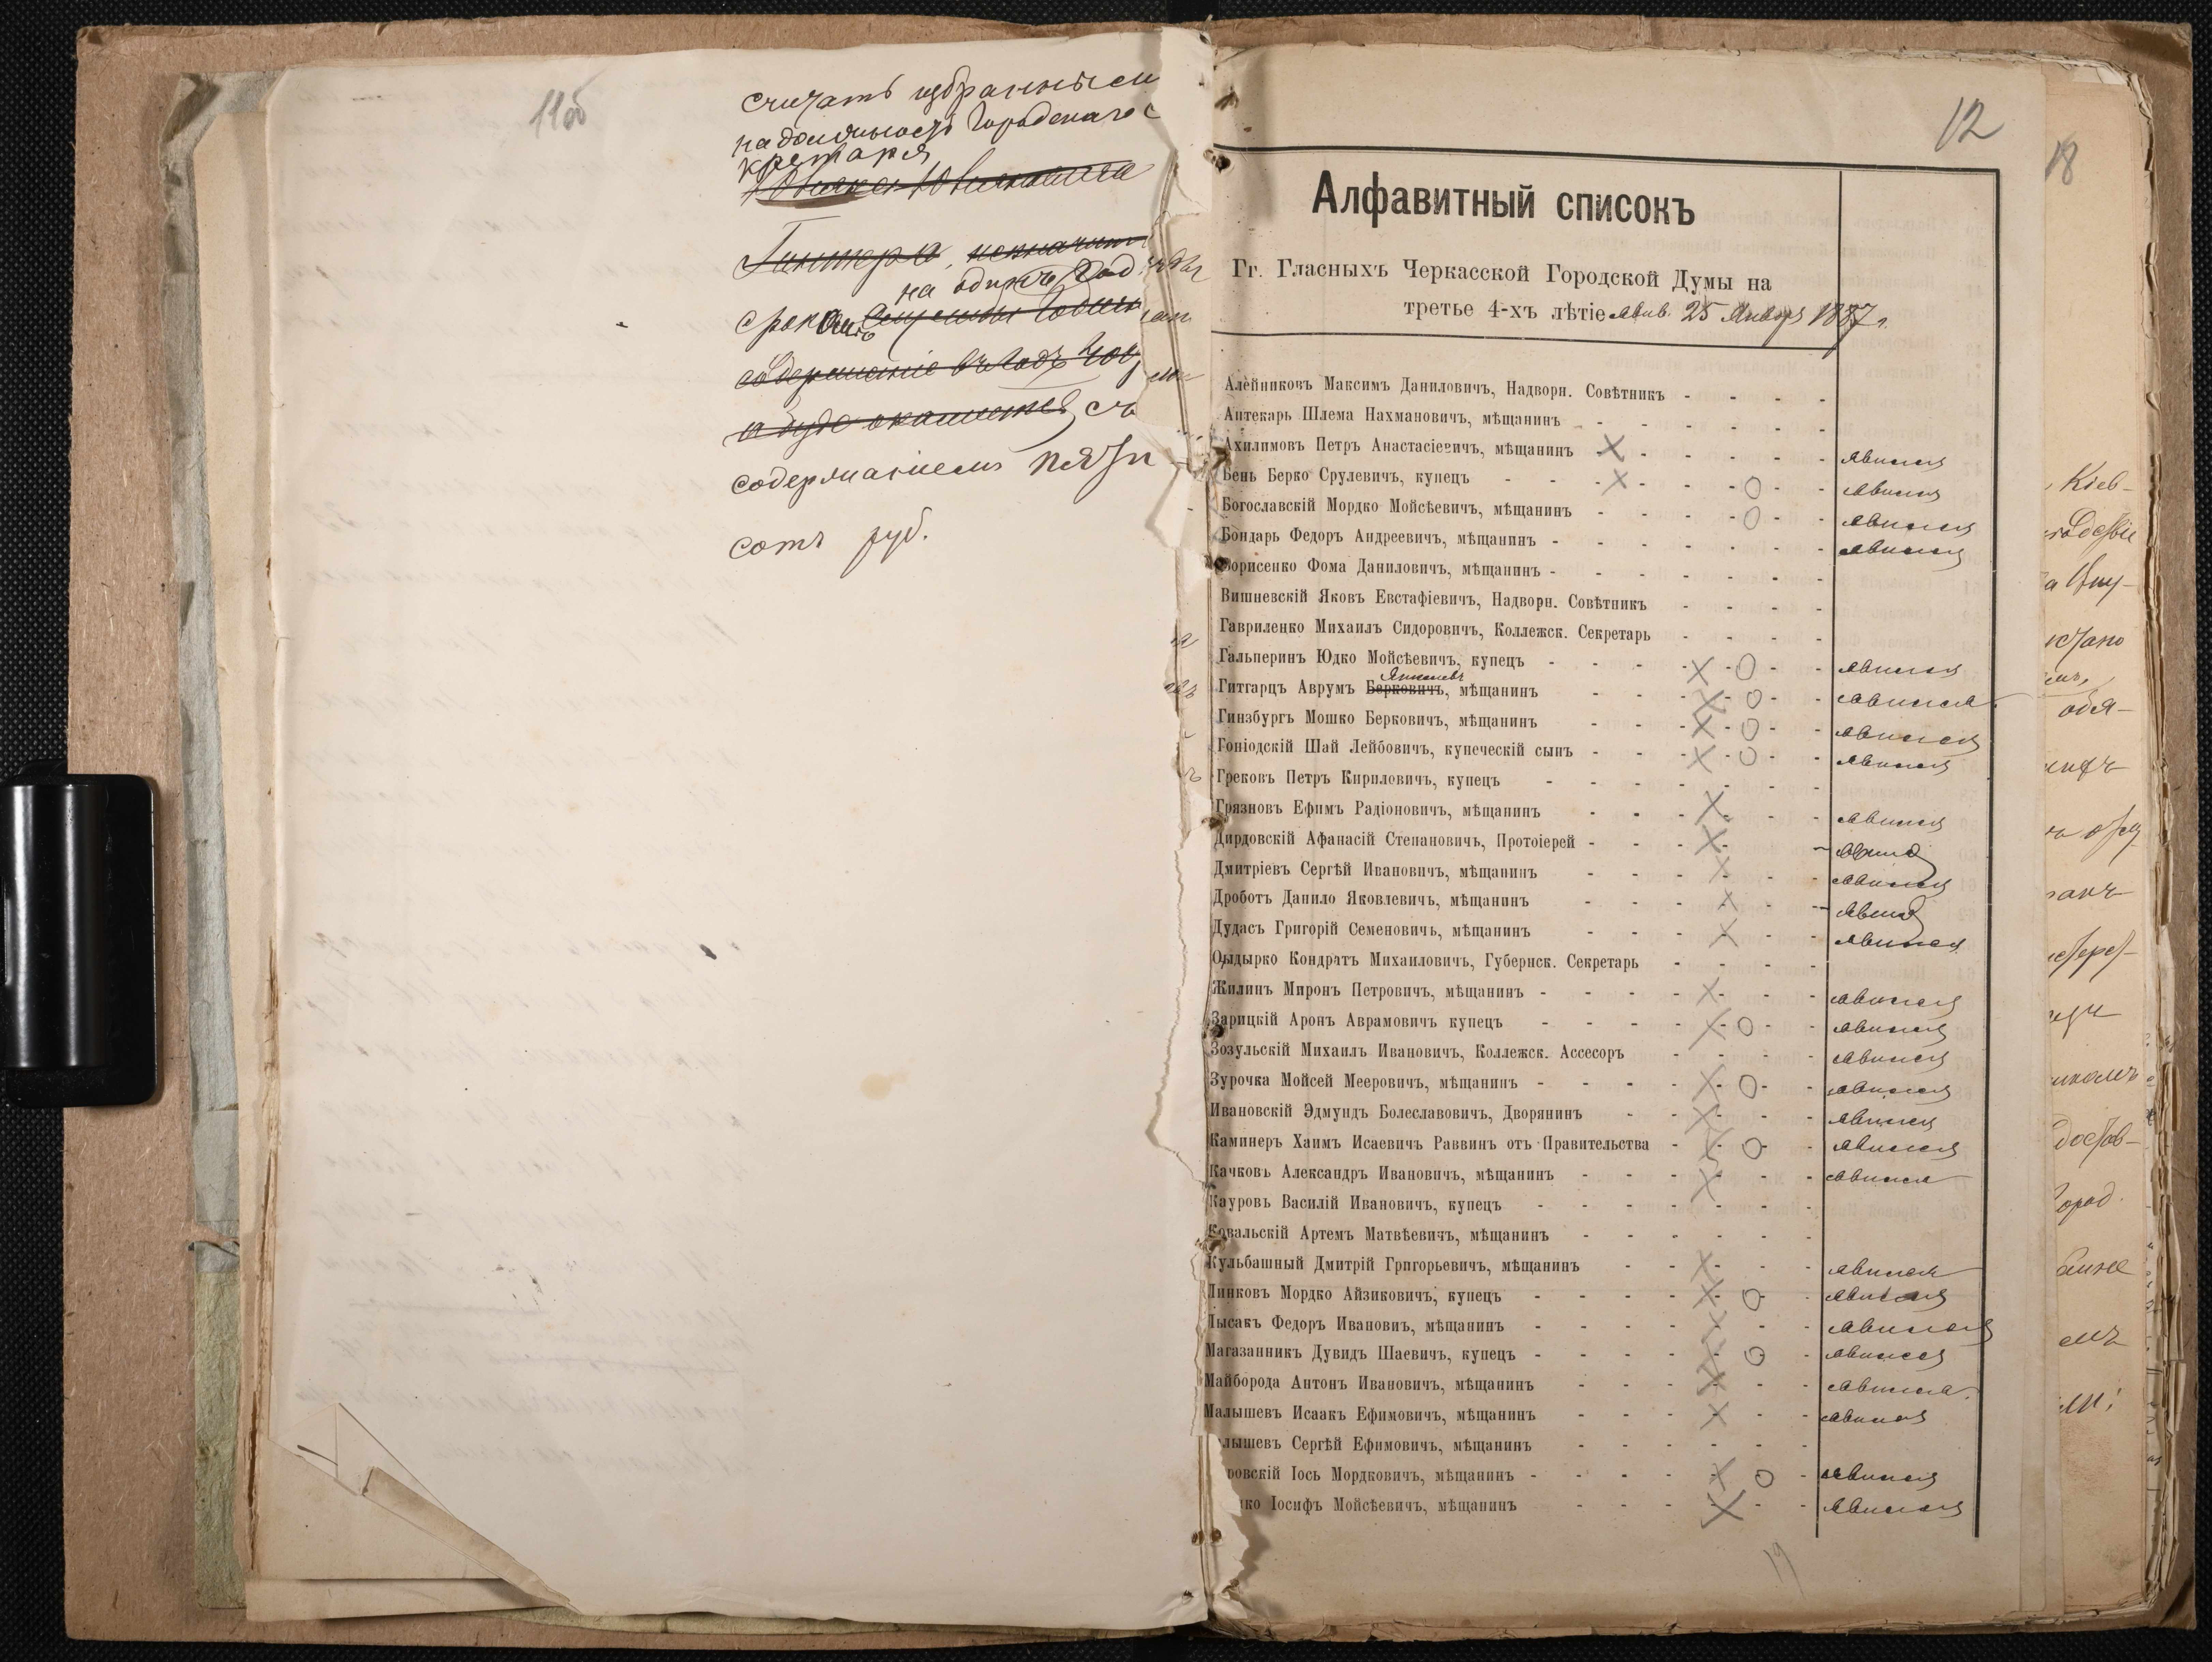 11об
считать избраннымъ
на должность Городскаго с
кретаря
Гинтера, назначит
на одинъ год
срока
содержаніе въ годъ
а буде окажется съ
содержаніемъ пят
сотъ руб.
12
Алфавитный списокъ
Гг. Гласныхъ Черкасской Городской Думы на
третье 4-хъ лѣтіе 25 Января 1887 г.
Алейниковъ Максимъ Даниловичъ, Надворн. Совѣтникъ - - - - -
Аптекарь Шлема Нахмановичъ, мѣщанинъ - - - - - -
Ахилимовъ Петръ Анастасіевичъ, мѣщанинъ - - - - - - явился
Бень Берко Срулевичъ, купецъ - - - - - - - явился
Богославскій Мордко Мойсѣевичъ, мѣщанинъ - - - - - - явился
Бондарь Федоръ Андреевичъ, мѣщанинъ - - - - - - - явился
Борисенко Фома Даниловичъ, мѣщанинъ - - - - - - -
Вишневскій Яковъ Евстафіевичъ, Надворн. Совѣтникъ - - - -
Гавриленко Михаилъ Сидоровичъ, Коллежск. Секретарь - - - -
Гальперинъ Юдко Мойсѣевичъ, купецъ - - - - - - явился
Янкелев
Гитгарцъ Аврумъ Берковичъ, мѣщанинъ - - - - - - явился
Гинзбургъ Мошко Берковичъ, мѣщанинъ - - - - - - явился
Гоніодскій Шай Лейбовичъ, купеческій сынъ - - - - - - явился
Грековъ Петръ Кириловичъ, купецъ - - - - - - -
Грязновъ Ефимъ Радіоновичъ, мѣщанинъ - - - - - - явился
Дирдовскій Афанасій Степановичъ, Протоіерей - - - - - явился
Дмитріевъ Сергѣй Ивановичъ, мѣщанинъ - - - - - - явился
Дроботъ Данило Яковлевичъ, мѣщанинъ - - - - - - явился
Дудасъ Григорій Семеновичъ, мѣщанинъ - - - - - - явился
Кондратъ Михаиловичъ, Губернск. Секретарь - - - -
Жилинъ Миронъ Петровичъ, мѣщанинъ - - - - - - - явился
Зарицкій Аронъ Аврамовичъ купецъ - - - - - - - явился
Зозульскій Михаилъ Ивановичъ, Коллежск. Ассесоръ - - - - - явился
Зурочка Мойсей Мееровичъ, мѣщанинъ - - - - - - - явился
Ивановскій Эдмундъ Болеславовичъ, Дворянинъ - - - - - явился
Каминеръ Хаимъ Исаевичъ Раввинъ отъ Правительства - - - - явился
Качковъ Александръ Ивановичъ, мѣщанинъ - - - - - - явился
Кауровъ Василій Ивановичъ, купецъ - - - - - - -
Ковальскій Артемъ Матвѣевичъ, мѣщанинъ - - - - - -
Кульбашный Дмитрій Григорьевичъ, мѣщанинъ - - - - - явился
Линковъ Мордко Айзиковичъ, купецъ - - - - - - - явился
Лысакъ Федоръ Ивановиъ, мѣщанинъ - - - - - - - явился
Магазанникъ Дувидъ Шаевичъ, купецъ - - - - - - явился
Майборода Антонъ Ивановичъ, мѣщанинъ - - - - - - явился
Малышевъ Исаакъ Ефимовичъ, мѣщанинъ - - - - - - явился
лышевъ Сергѣй Ефимовичъ, мѣщанинъ - - - - - -
ровскій Іось Мордковичъ, мѣщанинъ - - - - - - явился
ко Іосифъ Мойсѣевичъ, мѣщанинъ - - - - - - явился
19
18
Кіев-
обя-
достав-
Город.